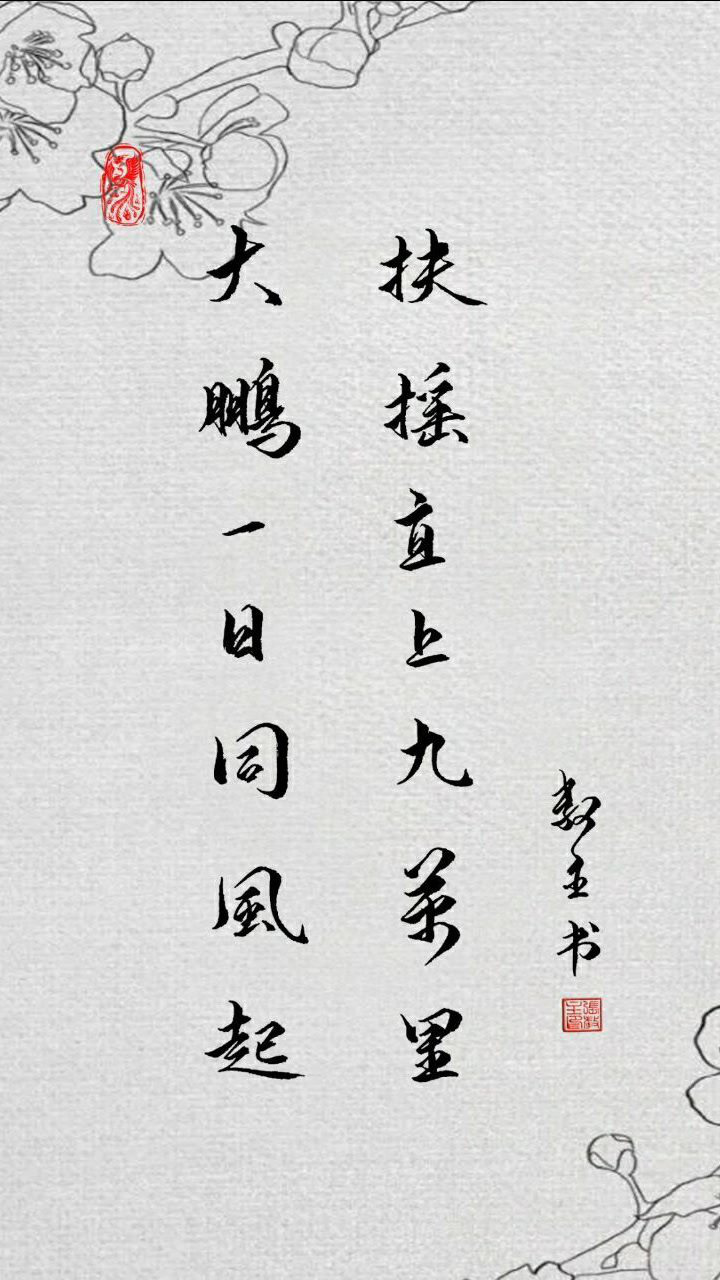 大鹏一日同風起
扶摇直上九萬里
教主书